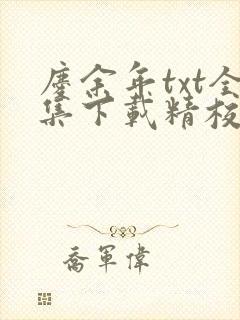 慶余年txt全
集下載精校
喬軍偉